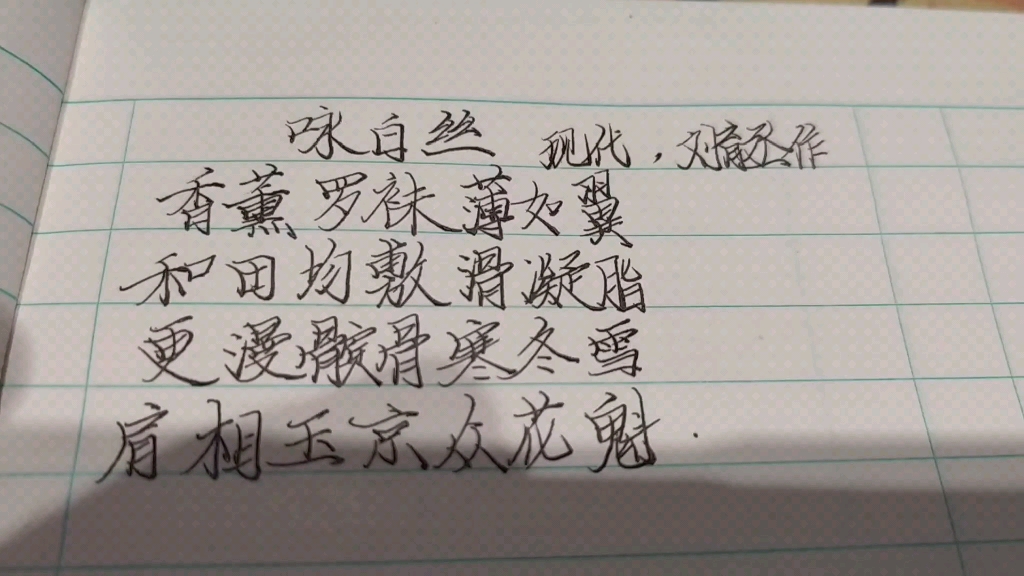 咏白丝 现代，刘商丞作
香薰罗袜薄如翼
和田均敷滑凝脂
更漫髋骨寒冬雪
肩相玉京众花魁.